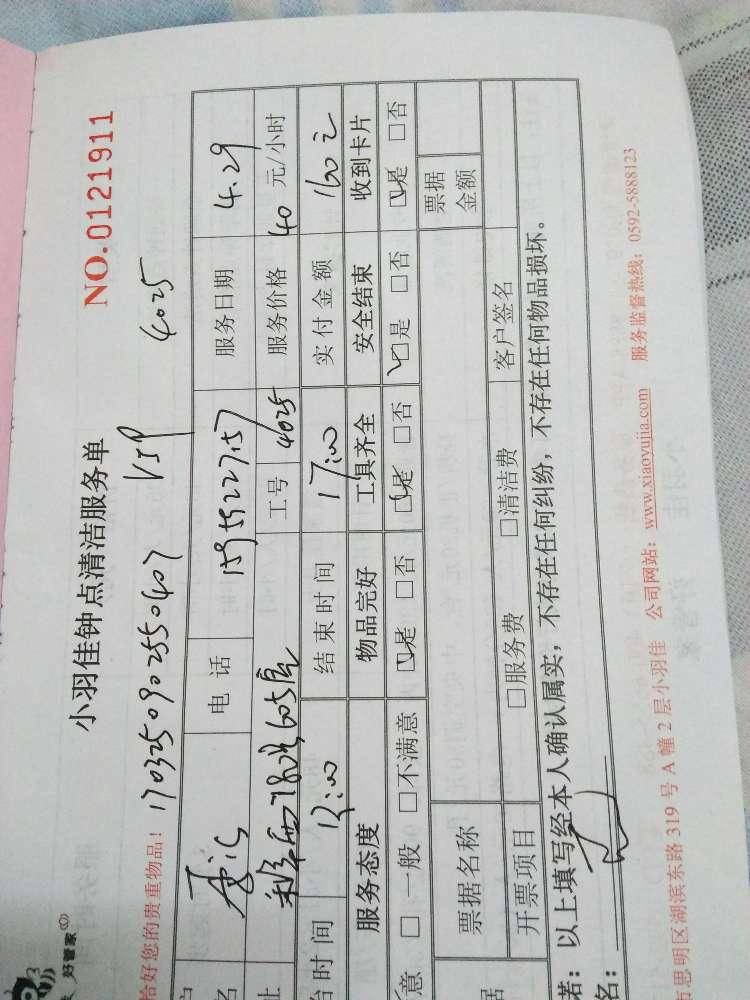 NO.0121911
小羽佳钟点清洁服务单
好管家
您的贵重物品! 170325090255 0407 VIP 4025
电话 15959227157 服务日期 4.29
工号 4025 服务价格 40 元/小时
时间 13:00 结束时间 17:00 实付金额 160元
服务态度 物品完好 工具齐全 安全结束 收到卡片
意 □一般 □不满意 □是 □否 □是 □否 □是 □否 □是 □否
票据名称 票据金额
开票项目 □服务费 □清洁费 客户签名
诺: 以上填写经本人确认属实, 不存在任何纠纷, 不存在任何物品损坏。
名:
思明区湖滨东路 319 号 A 幢 2 层小羽佳 公司网站: www.xiaoyujia.com 服务监督热线: 0592-5888123